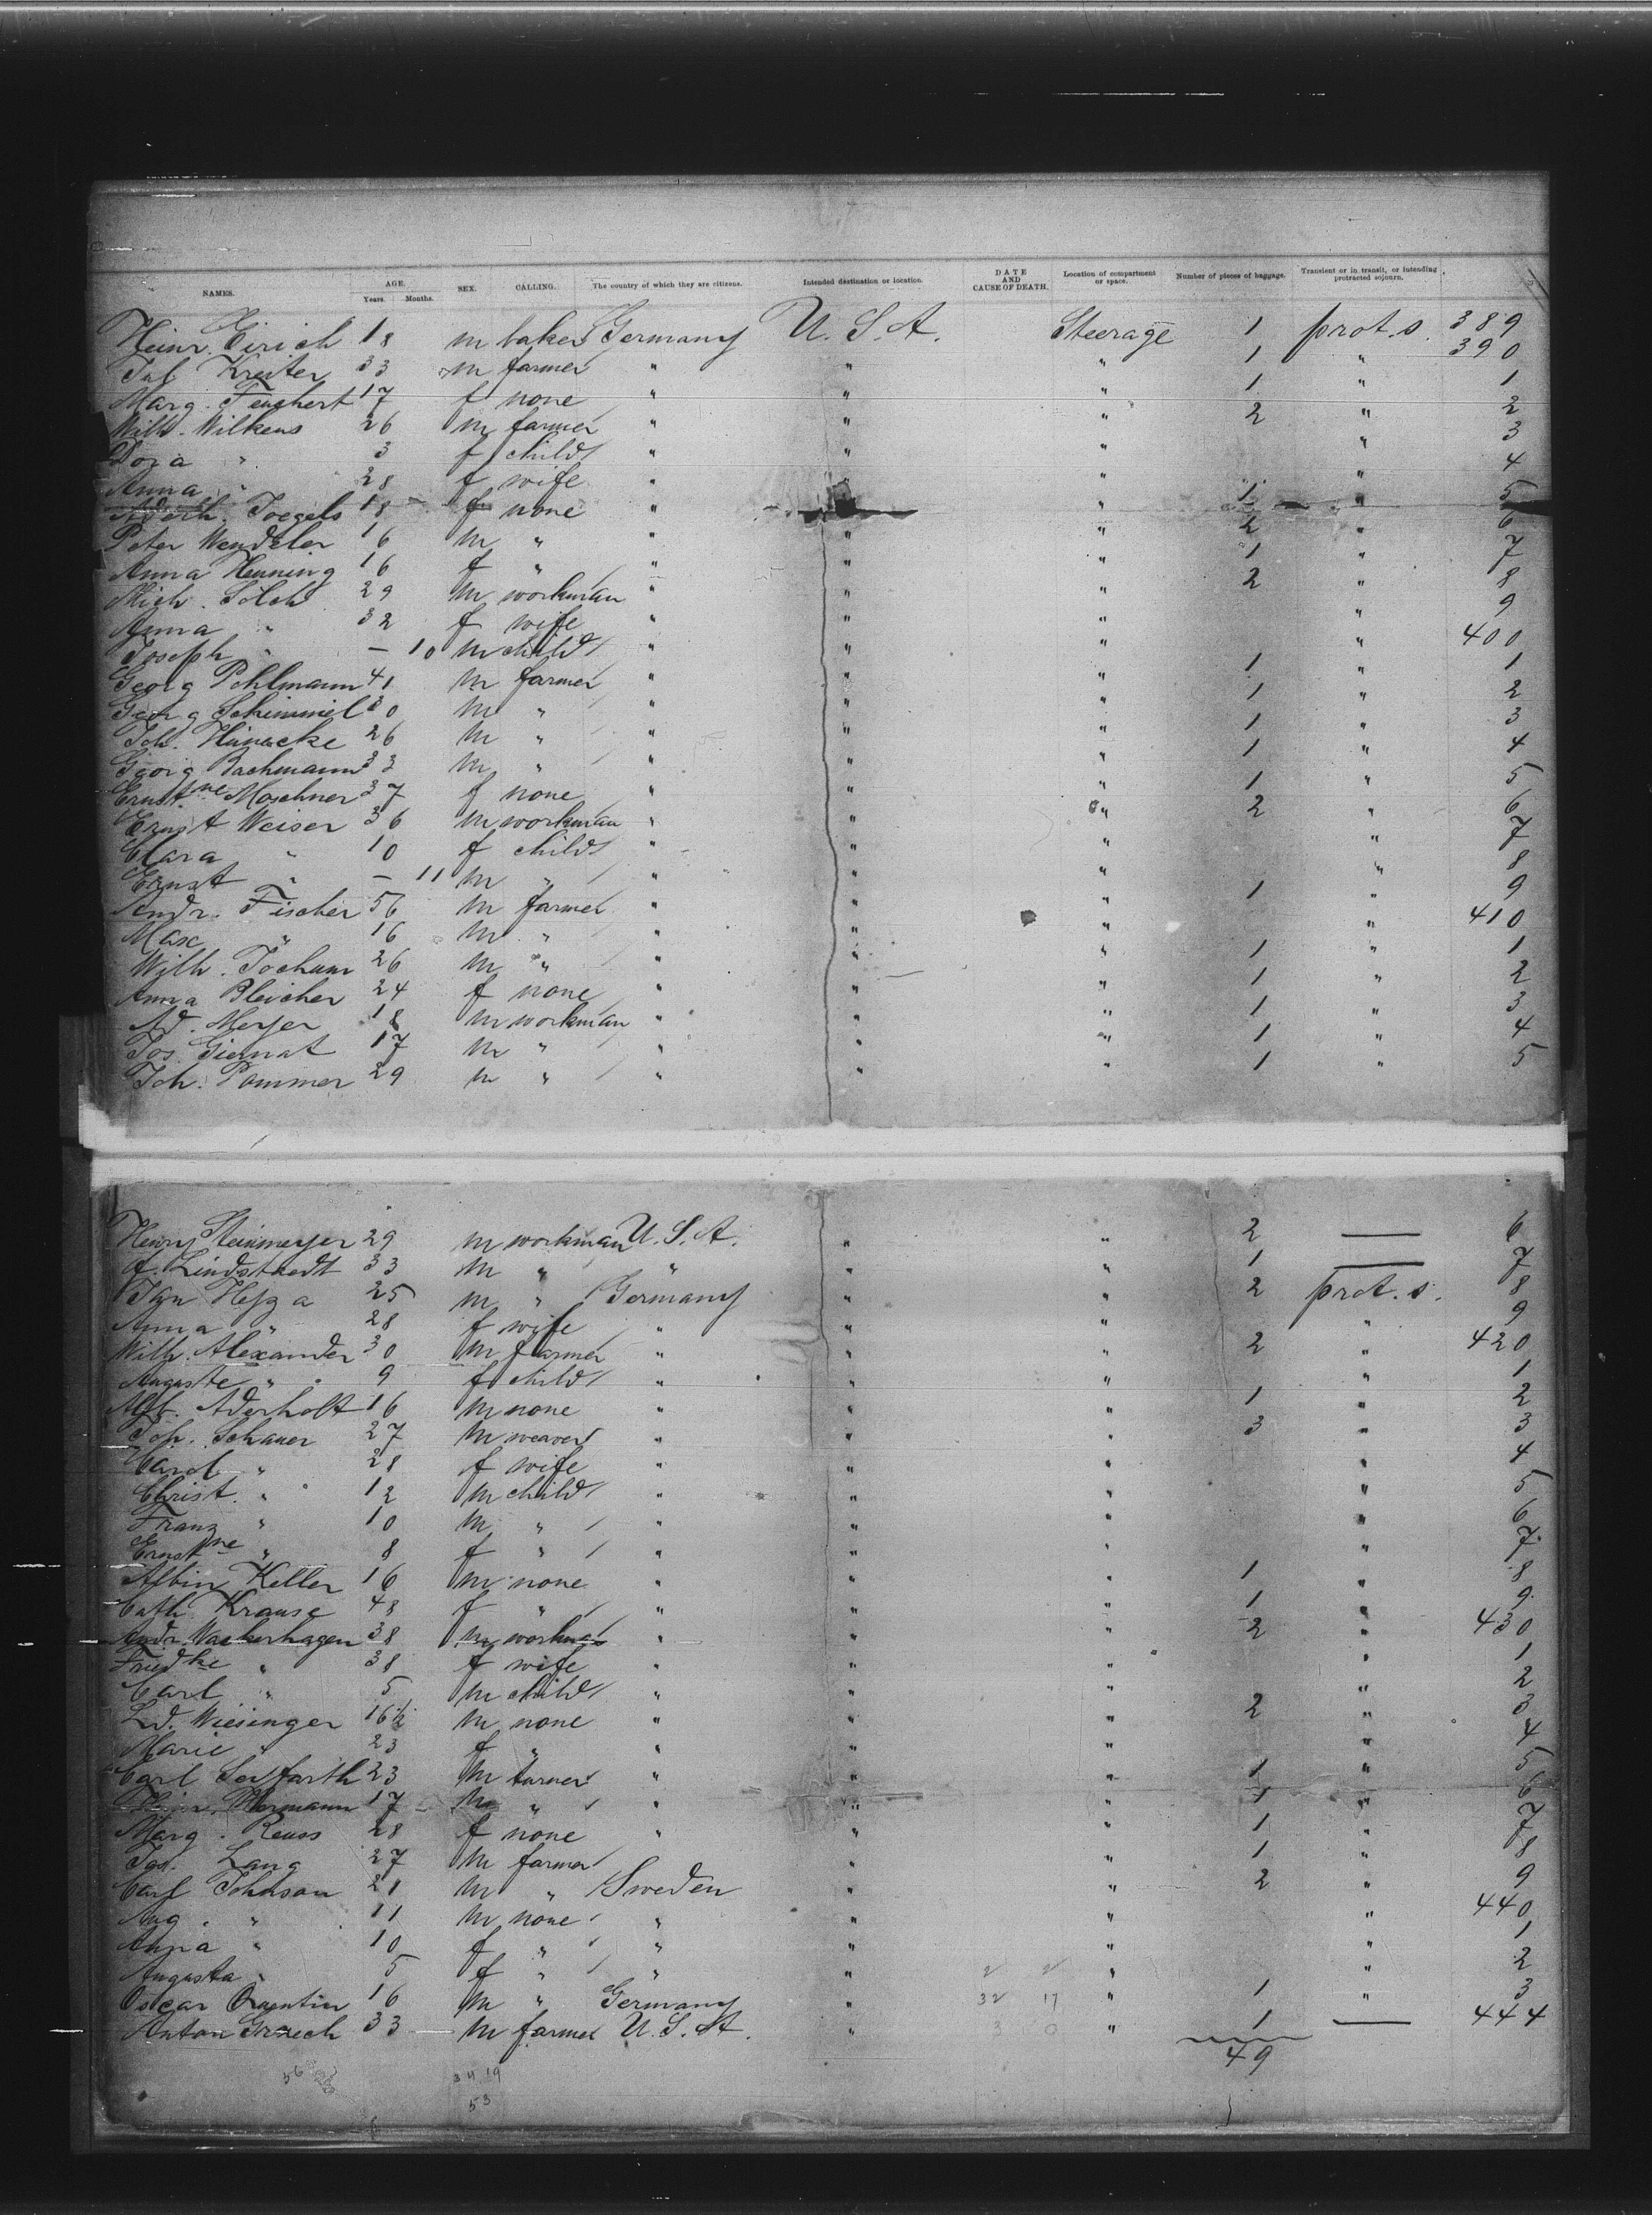 NAMES. AGE. Years. Months. SEX. CALLING. The country of which they are citizens. Intended destination or location. DATE AND CAUSE OF DEATH. Location of compartment or space. Number of pieces of baggage. Transient or in transit, or intending protracted sojourn.
Heinr. Eirich 18 m baker Germany U. S. A. Steerage 1 prot. s. 389
Jul. Kreiter 33 m farmer " " " 1 " 390
Marg. Feughert 17 f none " " " 1 " 1
Wilh. Wilkens 26 m farmer " " " 2 " 2
Dora " 3 f child " " " " 3
Anna " 28 f wife " " " " 4
Toegels 18 f none " " " 1 " 5
Peter Wendeler 16 m " " " " 2 " 6
Anna Henning 16 f " " " " 1 " 7
Mich. Solch 29 m workman " " " 2 " 8
Anna " 32 f wife " " " " 9
Joseph " — 10 m child " " " " 400
Georg Pohlmann 41 m farmer " " " 1 " 1
Georg Schimmel 30 m " " " " 1 " 2
Joh. Heinecke 26 m " " " " 1 " 3
Georg Bachmann 33 m " " " " 1 " 4
Ernstne Moschner 37 f none " " " 1 " 5
Ernst Weiser 36 m workman " " " 2 " 6
Clara " 10 f child " " " " 7
Ernst " — 11 m " " " " " 8
Andr. Fischer 56 m farmer " " " 1 " 9
Max " 16 m " " " " " 410
Wilh. Jochum 26 m " " " " 1 " 1
Anna Bleicher 24 f none " " " 1 " 2
Ad. Meyer 18 m workman " " " 1 " 3
Jos. Giernat 17 m " " " " 1 " 4
Joh. Pommer 29 m " " " " 1 " 5
Henry Steinmeyer 29 m workman U. S. A. " " 2 — 6
A. Lindstaedt 33 m " " " " 1 — 7
Jan Hesza 25 m " Germany " " 2 prot. s. 8
Anna " 28 f wife " " " " 9
Wilh. Alexander 30 m farmer " " " 2 " 420
Auguste " 9 f child " " " " 1
Alb. Aderholt 16 m none " " " 1 " 2
Joh. Schauer 27 m weaver " " " 3 " 3
Carol. " 28 f wife " " " " 4
Christ. " 12 m child " " " " 5
Franz " 10 m " " " " " 6
Ernstne " 8 f " " " " " 7
Albin Keller 16 m none " " " 1 " 8
Cath. Krause 48 f " " " " 1 " 9
Andr. Wackerhagen 38 m workman " " " 2 " 430
Friedke " 38 f wife " " " " 1
Carl " 5 m child " " " " 2
Ld. Wiesinger 16½ m none " " " 2 " 3
Marie " 23 f " " " " " 4
Carl Seyfarth 23 m turner " " " 1 " 5
Heinr. 17 m " " " " 1 " 6
Marg. Reuss 28 f none " " " 1 " 7
Lang 27 m farmer " " 1 " 8
Carl Johnson 21 m " Sweden " " 2 " 9
Aug. " 11 m none " " " " 440
Anna " 10 f " " " " " 1
Augusta " 5 f " " " " " 2
Oscar Quentin 16 m " Germany " 32 17 " 1 " 3
Anton Grzech 33 m farmer U. S. A. " 3 0 " 1 — 444
49
34 19
53